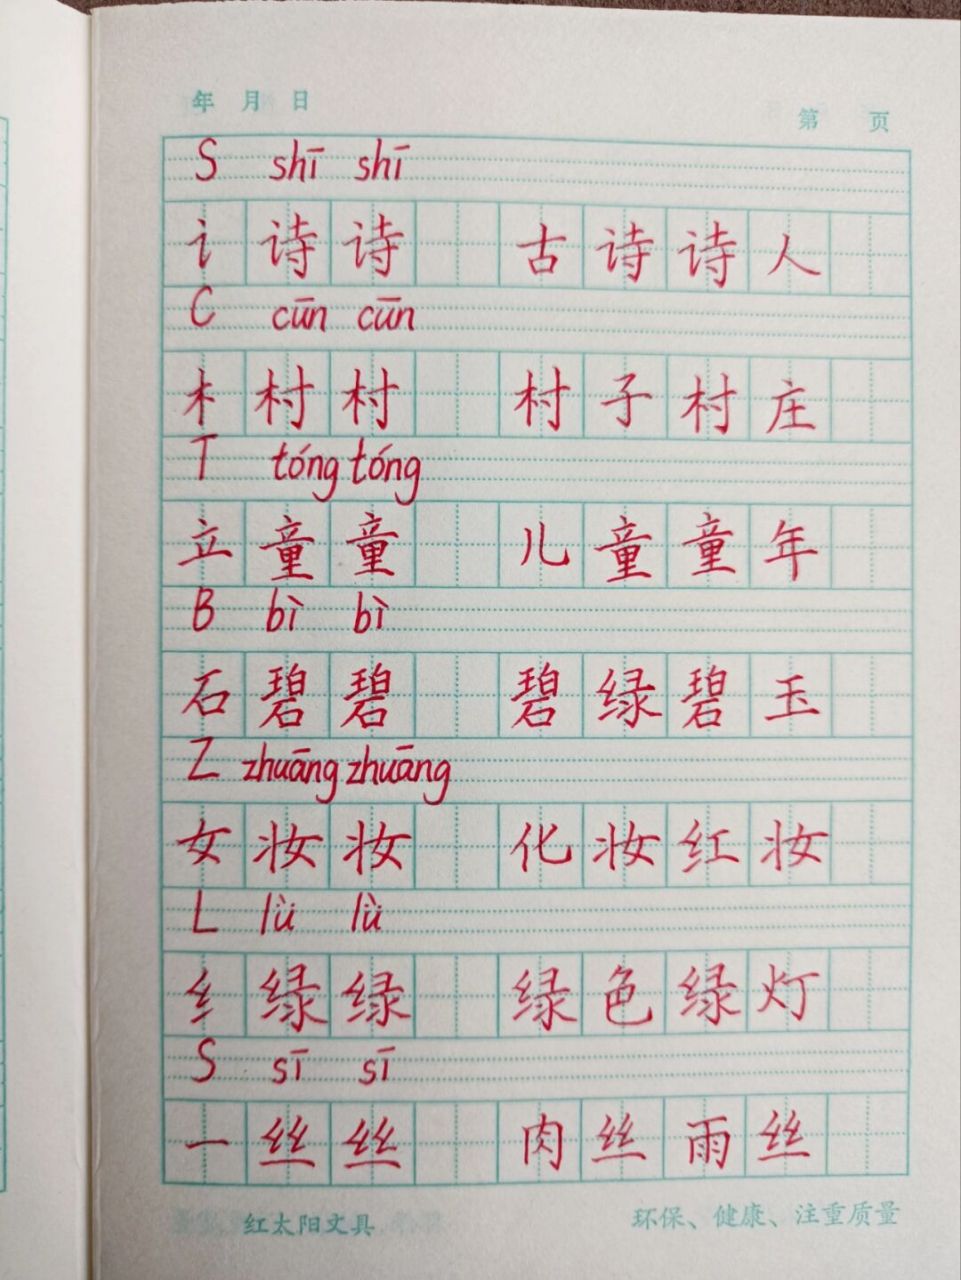 年 月 日
第 页
S shī shī
讠 诗 诗 古 诗 诗 人
C cūn cūn
木 村 村 村 子 村 庄
T tóng tóng
立 童 童 儿 童 童 年
B bì bì
石 碧 碧 碧 绿 碧 玉
Z zhuāng zhuāng
女 妆 妆 化 妆 红 妆
L lǜ lǜ
纟 绿 绿 绿 色 绿 灯
S sī sī
一 丝 丝 肉 丝 雨 丝
红太阳文具
环保、健康、注重质量